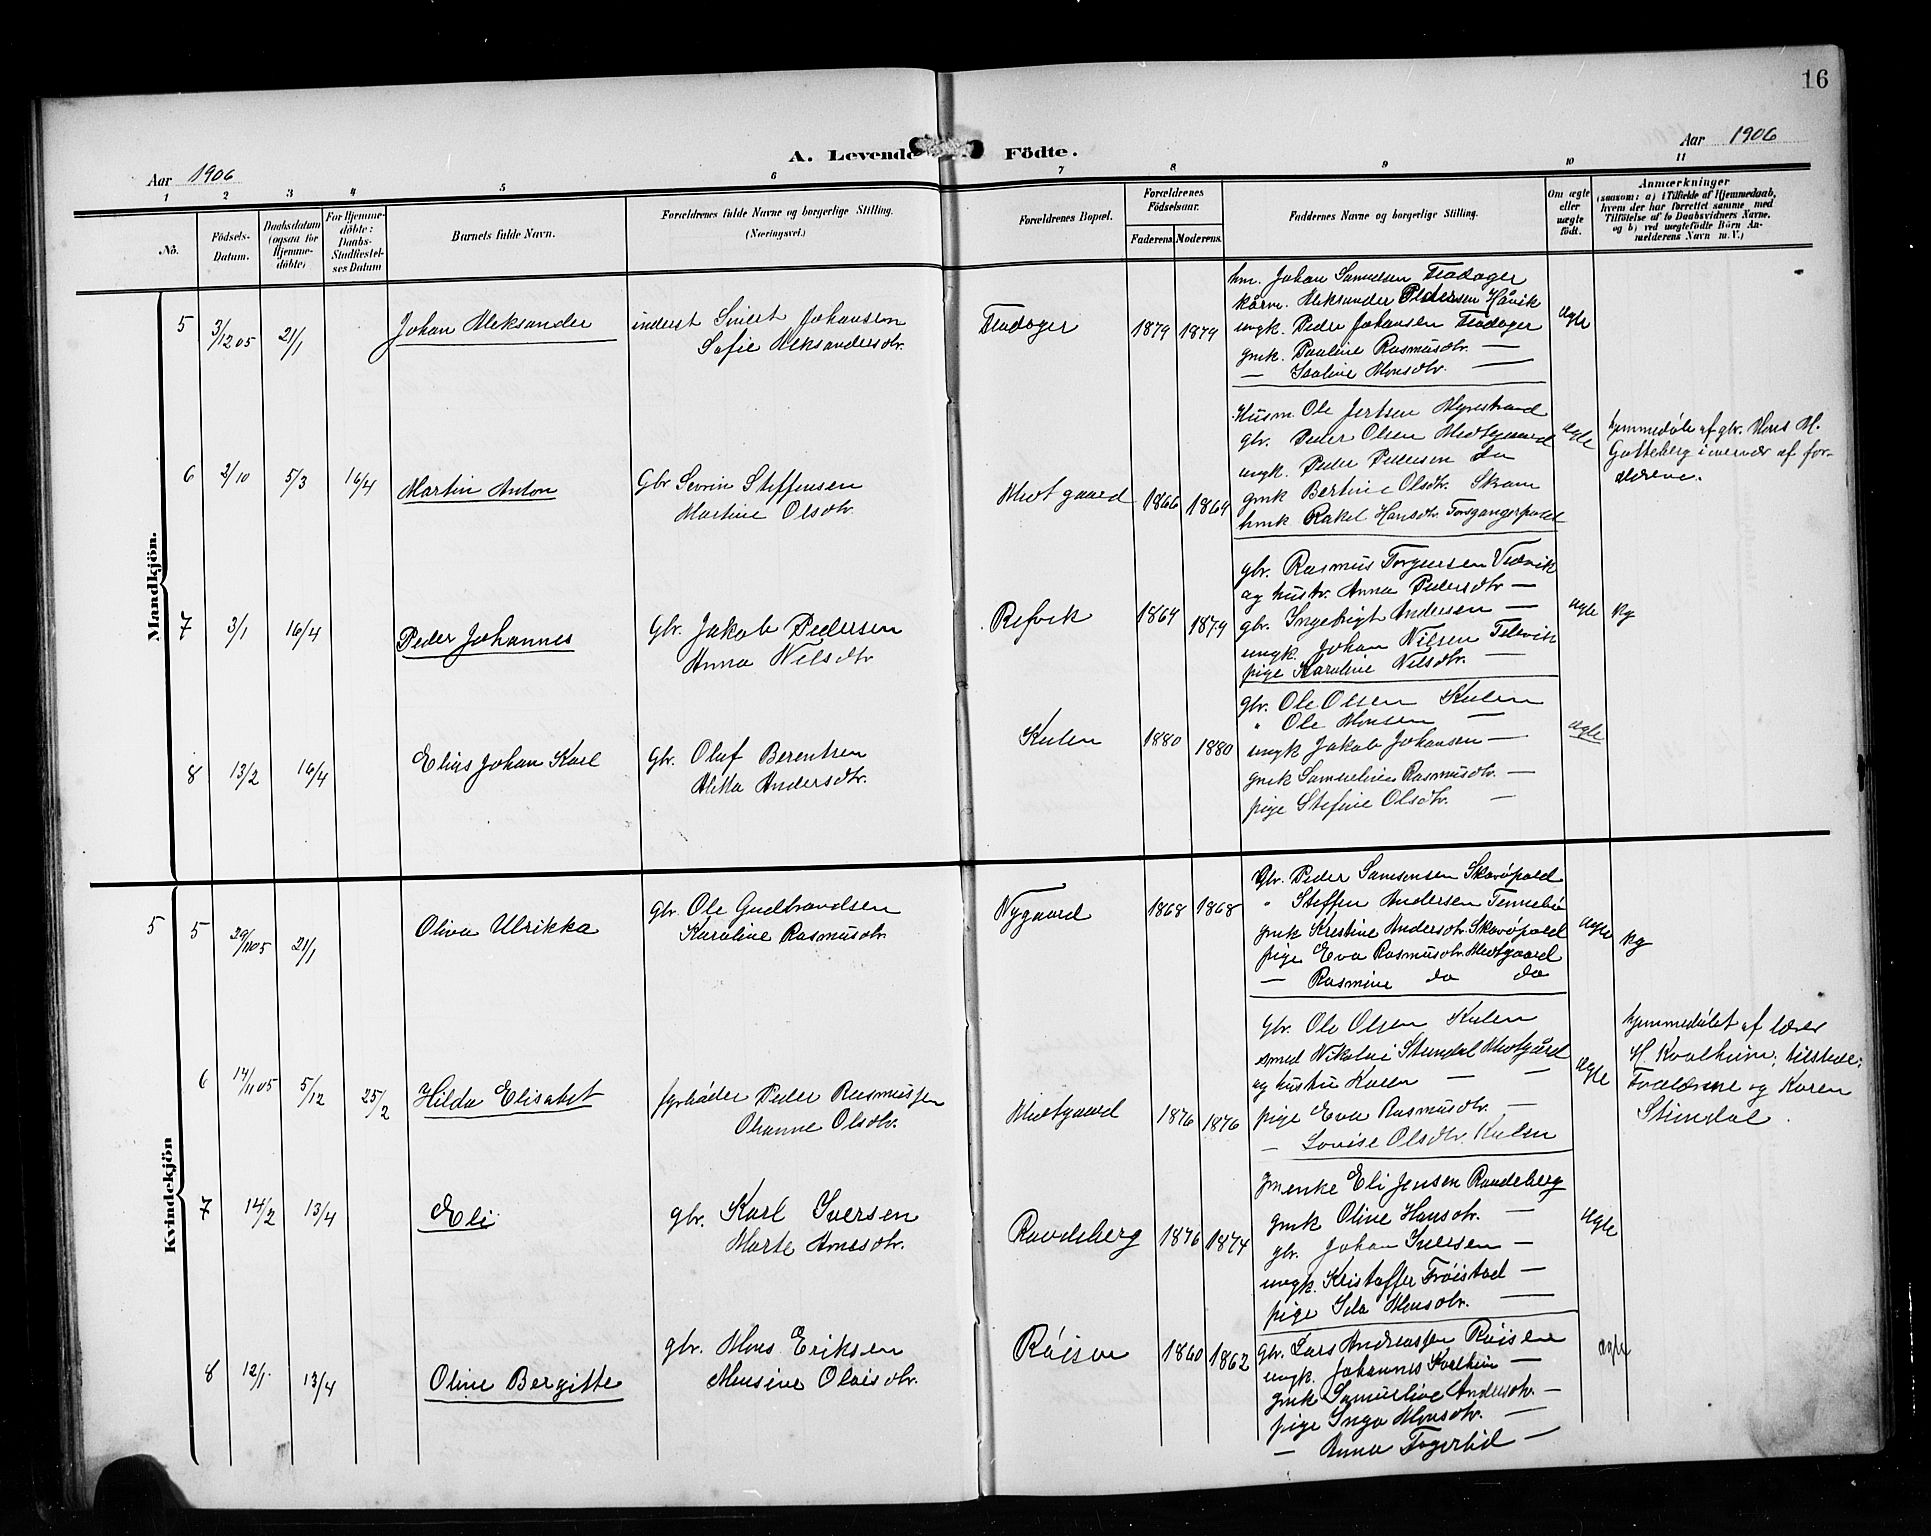 16
A. Levende Födte.
Aar 1906
Aar 1906
1 2 3 4 5 6 7 8 9 10 11
No.
Födsels-Datum.
Daabsdatum (ogsaa for Hjemmedöbte)
For Hjemmedöbte: Daabs-Stadfæstelses Datum
Barnets fulde Navn.
Forældrenes fulde Navne og borgerlige Stilling.
(Næringsvei.)
Forældrenes Bopæl.
Forældrenes Födselsaar.
Faderens. Moderens.
Faddernes Navne og borgerlige Stilling.
Om ægte eller uægte født.
Anmærkninger
(saasom: a) i Tilfælde af Hjemmedaab,
hvem der har forrettet samme med
Tilföielse af to Daabsvidners Navne.
og b) ved uægtefödte Börn An-
melderens Navn m. V.)
Mandkjön.
5 3/12 05 21/1 Johan Aleksander
inderst Sivert Johansen
Sofie Aleksandersdtr.
1879 1879
Johan Samuelsen
Aleksander Pedersen Håvik
ungk. Peder Johansen
gmk. Pauline Rasmusdtr. —
— Monsdtr. —
ægte
6 2/10 5/3 16/4 Martin Anton
Gbr Sevrin Steffensen
Martine Olsdtr.
Midtgaard 1866 1864
Husm. Ole Myrestrand
gbr. Peder Olsen Midtgaard
ungk. Peder Pedersen do
gmk Bertine Olsdtr. Skram
gmk Rakel Hansdtr.
ægte
hjemmedöbt af gbr. Mons M.
Gotteberg i nærvær af for-
ældrene.
7 3/1 16/4 Peder Johannes
Gbr. Jakob Pedersen
Anna Nilsdtr
Refvik 1864 1879
gbr. Rasmus Torgersen Vedvik
og hustr. Anna Pedersdtr —
gbr. Ingebrigt Andersen —
ungk. Johan Nilsen
pige Karoline Nilsdtr. —
ægte kg
8 13/2 16/4 Elias Johan Karl
Gbr. Oluf Berentsen
Andersdtr.
Kulen 1880 1880
gbr. Ole Olsen Kulen
" Ole Monsen —
ungk Jakob Johansen —
gmk Samueline Rasmusdtr. —
pige Stefine Olsdtr. —
ægte
Kvindekjön
5 5 29/11 05 21/1 Oliva Ulrikka
gbr Ole Gudbrandsen
Karoline Rasmusdtr.
Nygaard 1868 1868
Gbr. Peder Samsonsen
" Steffen Andersen Tennebø
gmk Kristine Andersdtr
pige Eva Rasmusdtr. Midtgaard
— Rasmine do do
ægte kg
6 14/11 05 5/12 25/2 Hilda Elisabet
fyrbøder Peder Rasmussen
Olsdtr.
Midtgaard 1876 1876
Gbr. Ole Olsen Kulen
smed Nikolai Stendal Midtgård
og hustru Karen — —
pige Eva Rasmusdtr. —
— Lovise Olsdtr. Kulen
ægte
hjemmedöbt af lærer
M. Kvalheim; tilstede:
og Karen
Stendal.
7 14/2 13/4 Eli
gbr. Karl Iversen
Marte Monsdtr.
Raudeberg 1876 1874
gmenke Eli Jensen Raudeberg
gmk Oline Hansdtr. —
gbr. Johan Iversen —
ungk. Kristoffer Frøistad —
pige Ida Monsdtr. —
ægte
8 12/1 13/4 Oline Bergitte
gbr. Mons Eriksen
Monsine
Røisen 1860 1862
gbr. Lars Andreassen Røisene
ungk. Johannes Kvalheim —
gmk Samueline Andersdtr. —
pige Inga Monsdtr. —
— Anna Fagerlid —
ægte